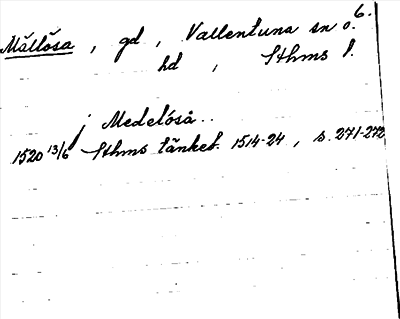 6.
Mållösa, gd, Vallentuna sn o.
hd, Sthms l.
j Medelöså..
1520 13/6 Sthms tänkeb. 1514-24, s. 271-272